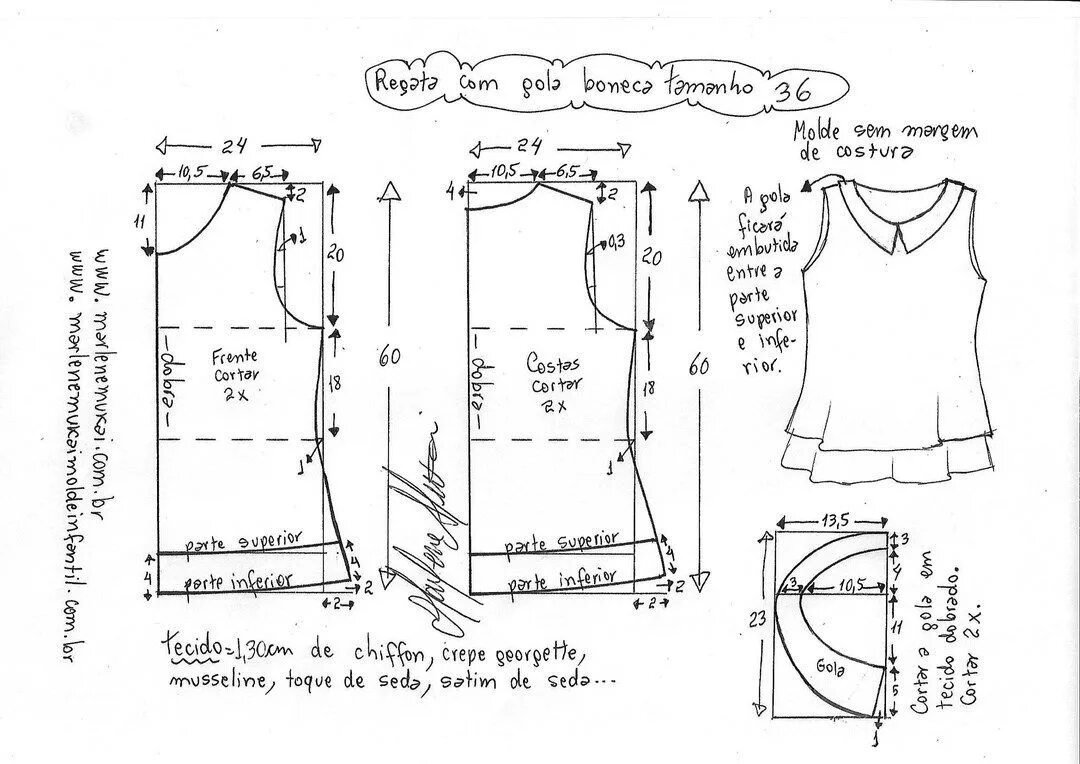 Regata com gola boneca tamanho 36
24
10,5
6,5
2
11
1
20
Frente
cortar
2x
dobra
18
1
60
parte superior
parte inferior
4
4
2
2
24
10,5
6,5
4
2
0,3
20
Costas
cortar
2x
dobra
18
1
60
parte superior
parte inferior
4
2
2
Molde sem margem
de costura
A gola
ficará
embutida
entre a
parte
superior
e infe-
rior.
13,5
3
4
3
10,5
23
11
Gola
5
1
Cortar a gola em
tecido dobrado.
Cortar 2x.
www.marlenemukai.com.br
www.marlenemukaimoldeinfantil.com.br
tecido=1,30cm de chiffon, crepe georgette,
musseline, toque de seda, satim de seda...